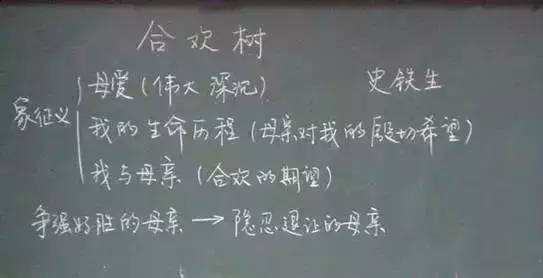 合欢树
史铁生
象征义
母爱(伟大 深沉)
我的生命历程(母亲对我的殷切希望)
我与母亲(合欢的期望)
争强好胜的母亲→隐忍退让的母亲